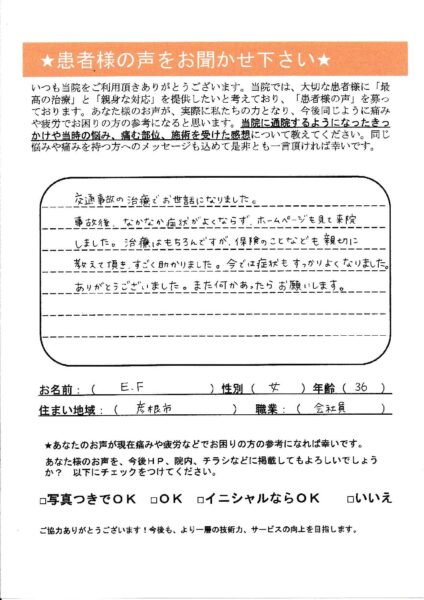 ★患者様の声をお聞かせ下さい★
いつも当院をご利用頂きありがとうございます。当院では、大切な患者様に「最
高の治療」と「親身な対応」を提供したいと考えており、「患者様の声」を募っ
ております。あなた様のお声が、実際に私たちの力となり、今後同じように痛み
や疲労でお困りの方の参考になると思います。当院に通院するようになったきっ
かけや当時の悩み、痛む部位、施術を受けた感想について教えてください。同じ
悩みや痛みを持つ方へのメッセージも込めて是非とも一言頂ければ幸いです。
交通事故の治療でお世話になりました。
事故後、なかなか症状がよくならず、ホームページを見て来院
しました。治療はもちろんですが、保険のことなども親切に
教えて頂き、すごく助かりました。今では症状もすっかりよくなりました。
ありがとうございました。また何かあったらお願いします。
お名前：（ E.F ）性別（ 女 ）年齢（ 36 ）
住まい地域：（ 彦根市 ） 職業：（ 会社員 ）
★あなたのお声が現在痛みや疲労などでお困りの方の参考になれば幸いです。
あなた様のお声を、今後ＨＰ、院内、チラシなどに掲載してもよろしいでしょう
か？ 以下にチェックをつけてください。
□写真つきでＯＫ □ＯＫ □イニシャルならＯＫ □いいえ
ご協力ありがとうございます！今後も、より一層の技術力、サービスの向上を目指します。